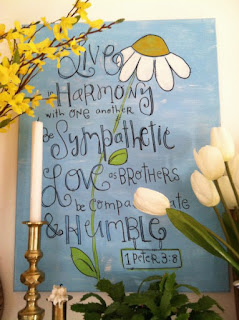 Live
in HARMONY
with ONE another
Be Sympathetic
Love as BROTHERS
be compa ate
& HUMBLE
1 PETER 3:8